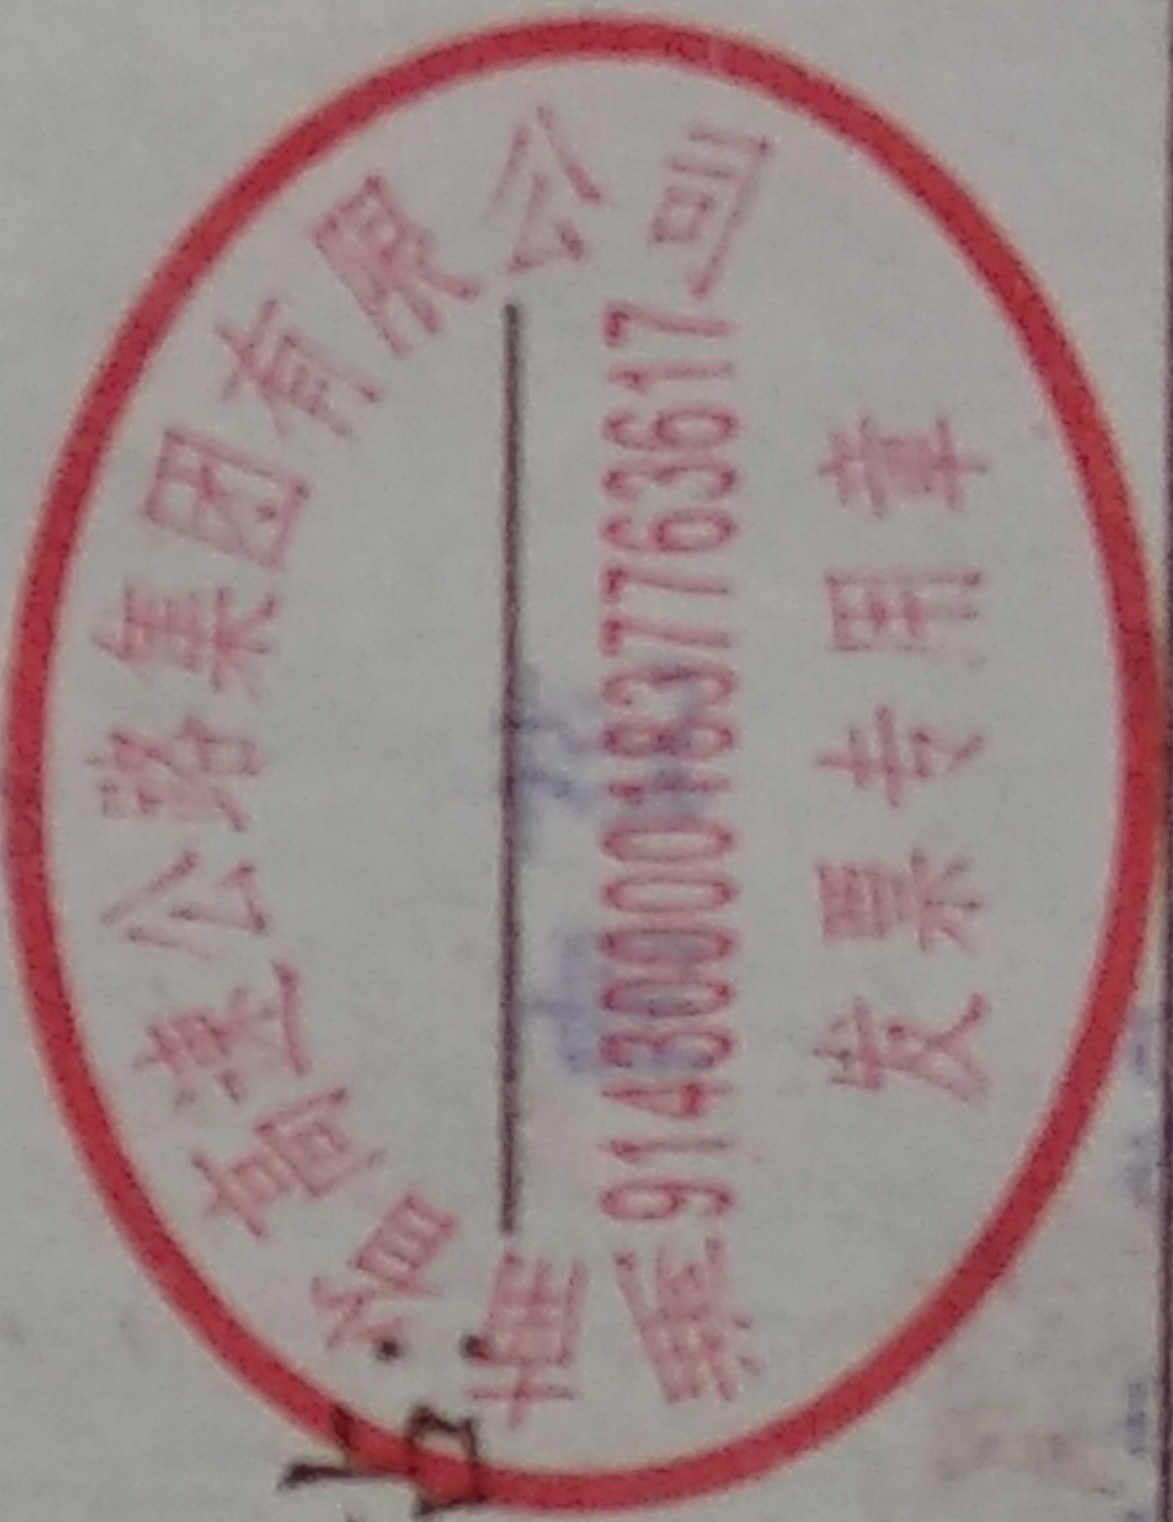 省高速公路集团有限公司
914300001837763617
发票专用章